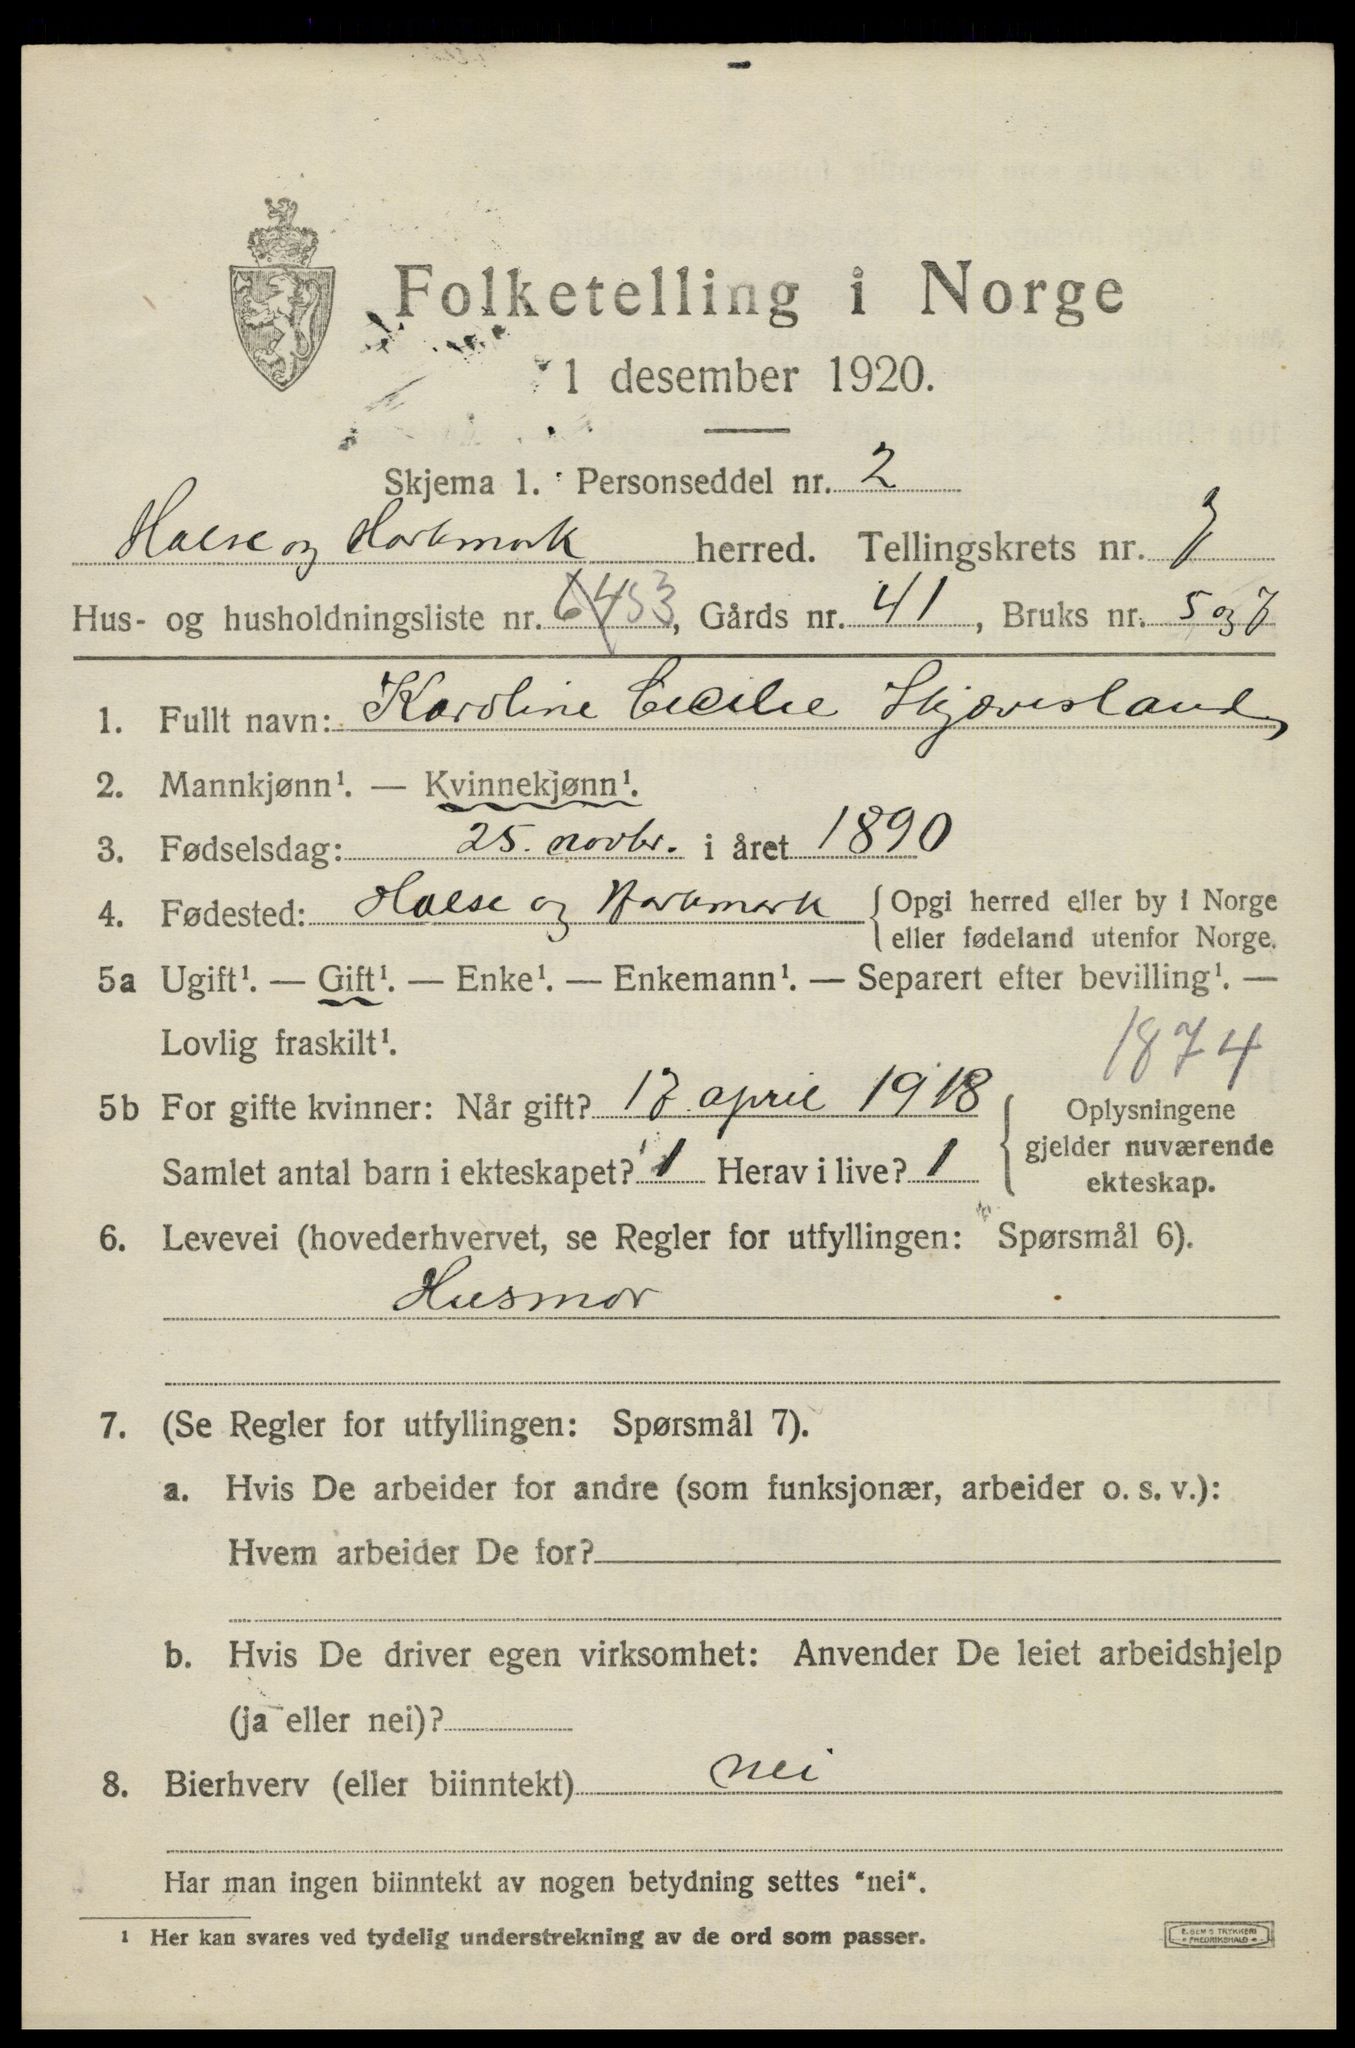 Folketelling i Norge
1 desember 1920.
Skjema 1. Personseddel nr. 2
Halse og Harkmark herred. Tellingskrets nr. 7
Hus- og husholdningsliste nr. 64 53, Gårds nr. 41, Bruks nr. 5 og 7
1. Fullt navn: Karoline Cecilie Skjævesland
2. Mannkjønn¹. — Kvinnekjønn¹.
3. Fødselsdag: 25. novbr. i året 1890
4. Fødested: Halse og Harkmark { Opgi herred eller by i Norge
eller fødeland utenfor Norge.
5a Ugift¹. — Gift¹. — Enke¹. — Enkemann¹. — Separert efter bevilling¹. —
Lovlig fraskilt¹.
1874
5b For gifte kvinner: Når gift? 17. april 1918 { Oplysningene
gjelder nuværende
ekteskap.
Samlet antal barn i ekteskapet? 1 Herav i live? 1
6. Levevei (hovederhvervet, se Regler for utfyllingen: Spørsmål 6).
Husmor
7. (Se Regler for utfyllingen: Spørsmål 7).
a. Hvis De arbeider for andre (som funksjonær, arbeider o. s. v.):
Hvem arbeider De for?
b. Hvis De driver egen virksomhet: Anvender De leiet arbeidshjelp
(ja eller nei)?
8. Bierhverv (eller biinntekt) nei
Har man ingen biinntekt av nogen betydning settes "nei".
¹ Her kan svares ved tydelig understrekning av de ord som passer.
E. SEM'S TRYKKERI
FREDRIKSHALD